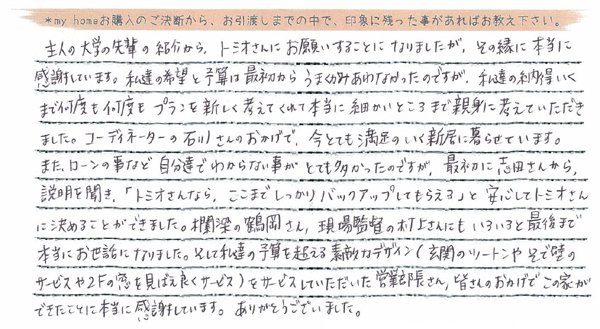 *my homeお購入のご決断から、お引渡しまでの中で、印象に残った事があればお教え下さい。
主人の大学の先輩の紹介から、トミオさんにお願いすることになりましたが、その縁に本当に
感謝しています。私達の希望と予算は最初からうまくかみあわなかったのですが、私達の納得いく
まで何度も何度もプランを新しく考えてくれて本当に細かいところまで親身に考えていただき
ました。コーディネーターの石川さんのおかげで、今とても満足のいく新居に暮らせています。
また、ローンの事など自分達でわからない事がとても多かったのですが、最初に志田さんから、
説明を聞き、「トミオさんなら、ここまでしっかりバックアップしてもらえる」と安心してトミオさん
に決めることができました。欄深の鶴岡さん、現場監督の村上さんにもいろいろと最後まで
本当にお世話になりました。そして私達の予算を超える素敵なデザイン(玄関のツートンや兄で畦の
サービスや2Fの窓を見ばえ良くサービス)をサービスしていただいた営業部長さん、皆さんのおかげでこの家が
できたことに本当に感謝しています。ありがとうございました。